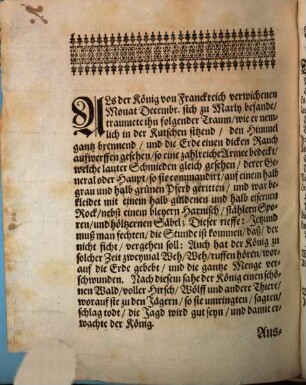 Als der König von Franckreich verwichenen
Monat Decembr. sich zu Marly befande/
traumete ihn folgender Traum/ wie er nem-
lich in der Kutschen sitzend / den Himmel
gantz brennend / und die Erden einen dicken Rauch
aufwerffen gesehen/ so eine zahlreiche Armee bedeckt/
welche lauter Schmieden gleich gesehen / derer Ge-
neral oder Haupt/ so sie commandirt/ auf einen halb
grau und halb grünen Pferd geritten / und war be-
kleidet mit einem halb güldenen und halb eisernen
Rock/ nebst einen bleyern Harnisch / stählern Spo-
ren/ und höltzernen Säbel: Dieser rieffe: Jetzund
muß man fechten/ die Stunde ist kommen/ daß/ der
nicht ficht/ vergehen soll: Auch hat der König zu
solcher Zeit zweymal Weh/ Weh/ ruffen hören/ wor-
auf die Erde gebebt / und die gantze Menge ver-
schwunden. Nach diesem sahe der König einen schö-
nen Wald/ voller Hirsch/ Wölff und andere Thiere/
worauf sie zu den Jägern / so sie umringten/ sagten/
schlag todt/ die Jagd wird gut seyn/ und damit er-
wachte der König.
Aus-